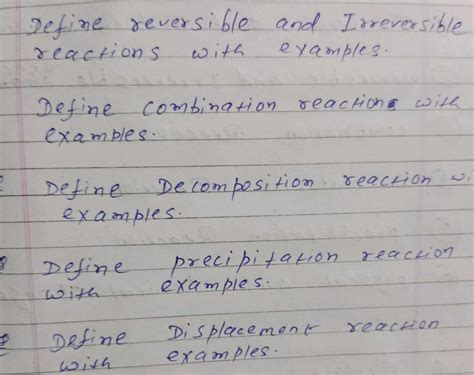 Define reversible and Irreversible
reactions with examples.
Define combination reaction with
examples.
Define Decomposition reaction
examples.
Define precipitation reaction
with examples.
Define Displacement reaction
with examples.